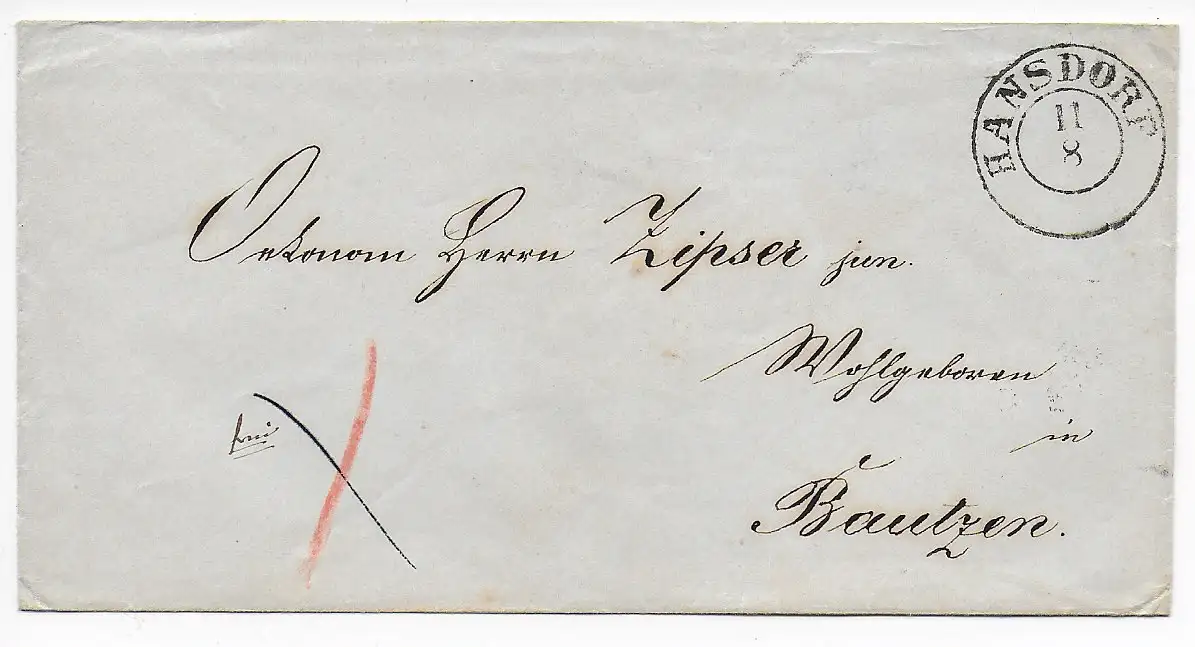 HANSDORF
11
8
Oekonom Herrn Zipser jun.
Wohlgeboren
in
frei
Bautzen.